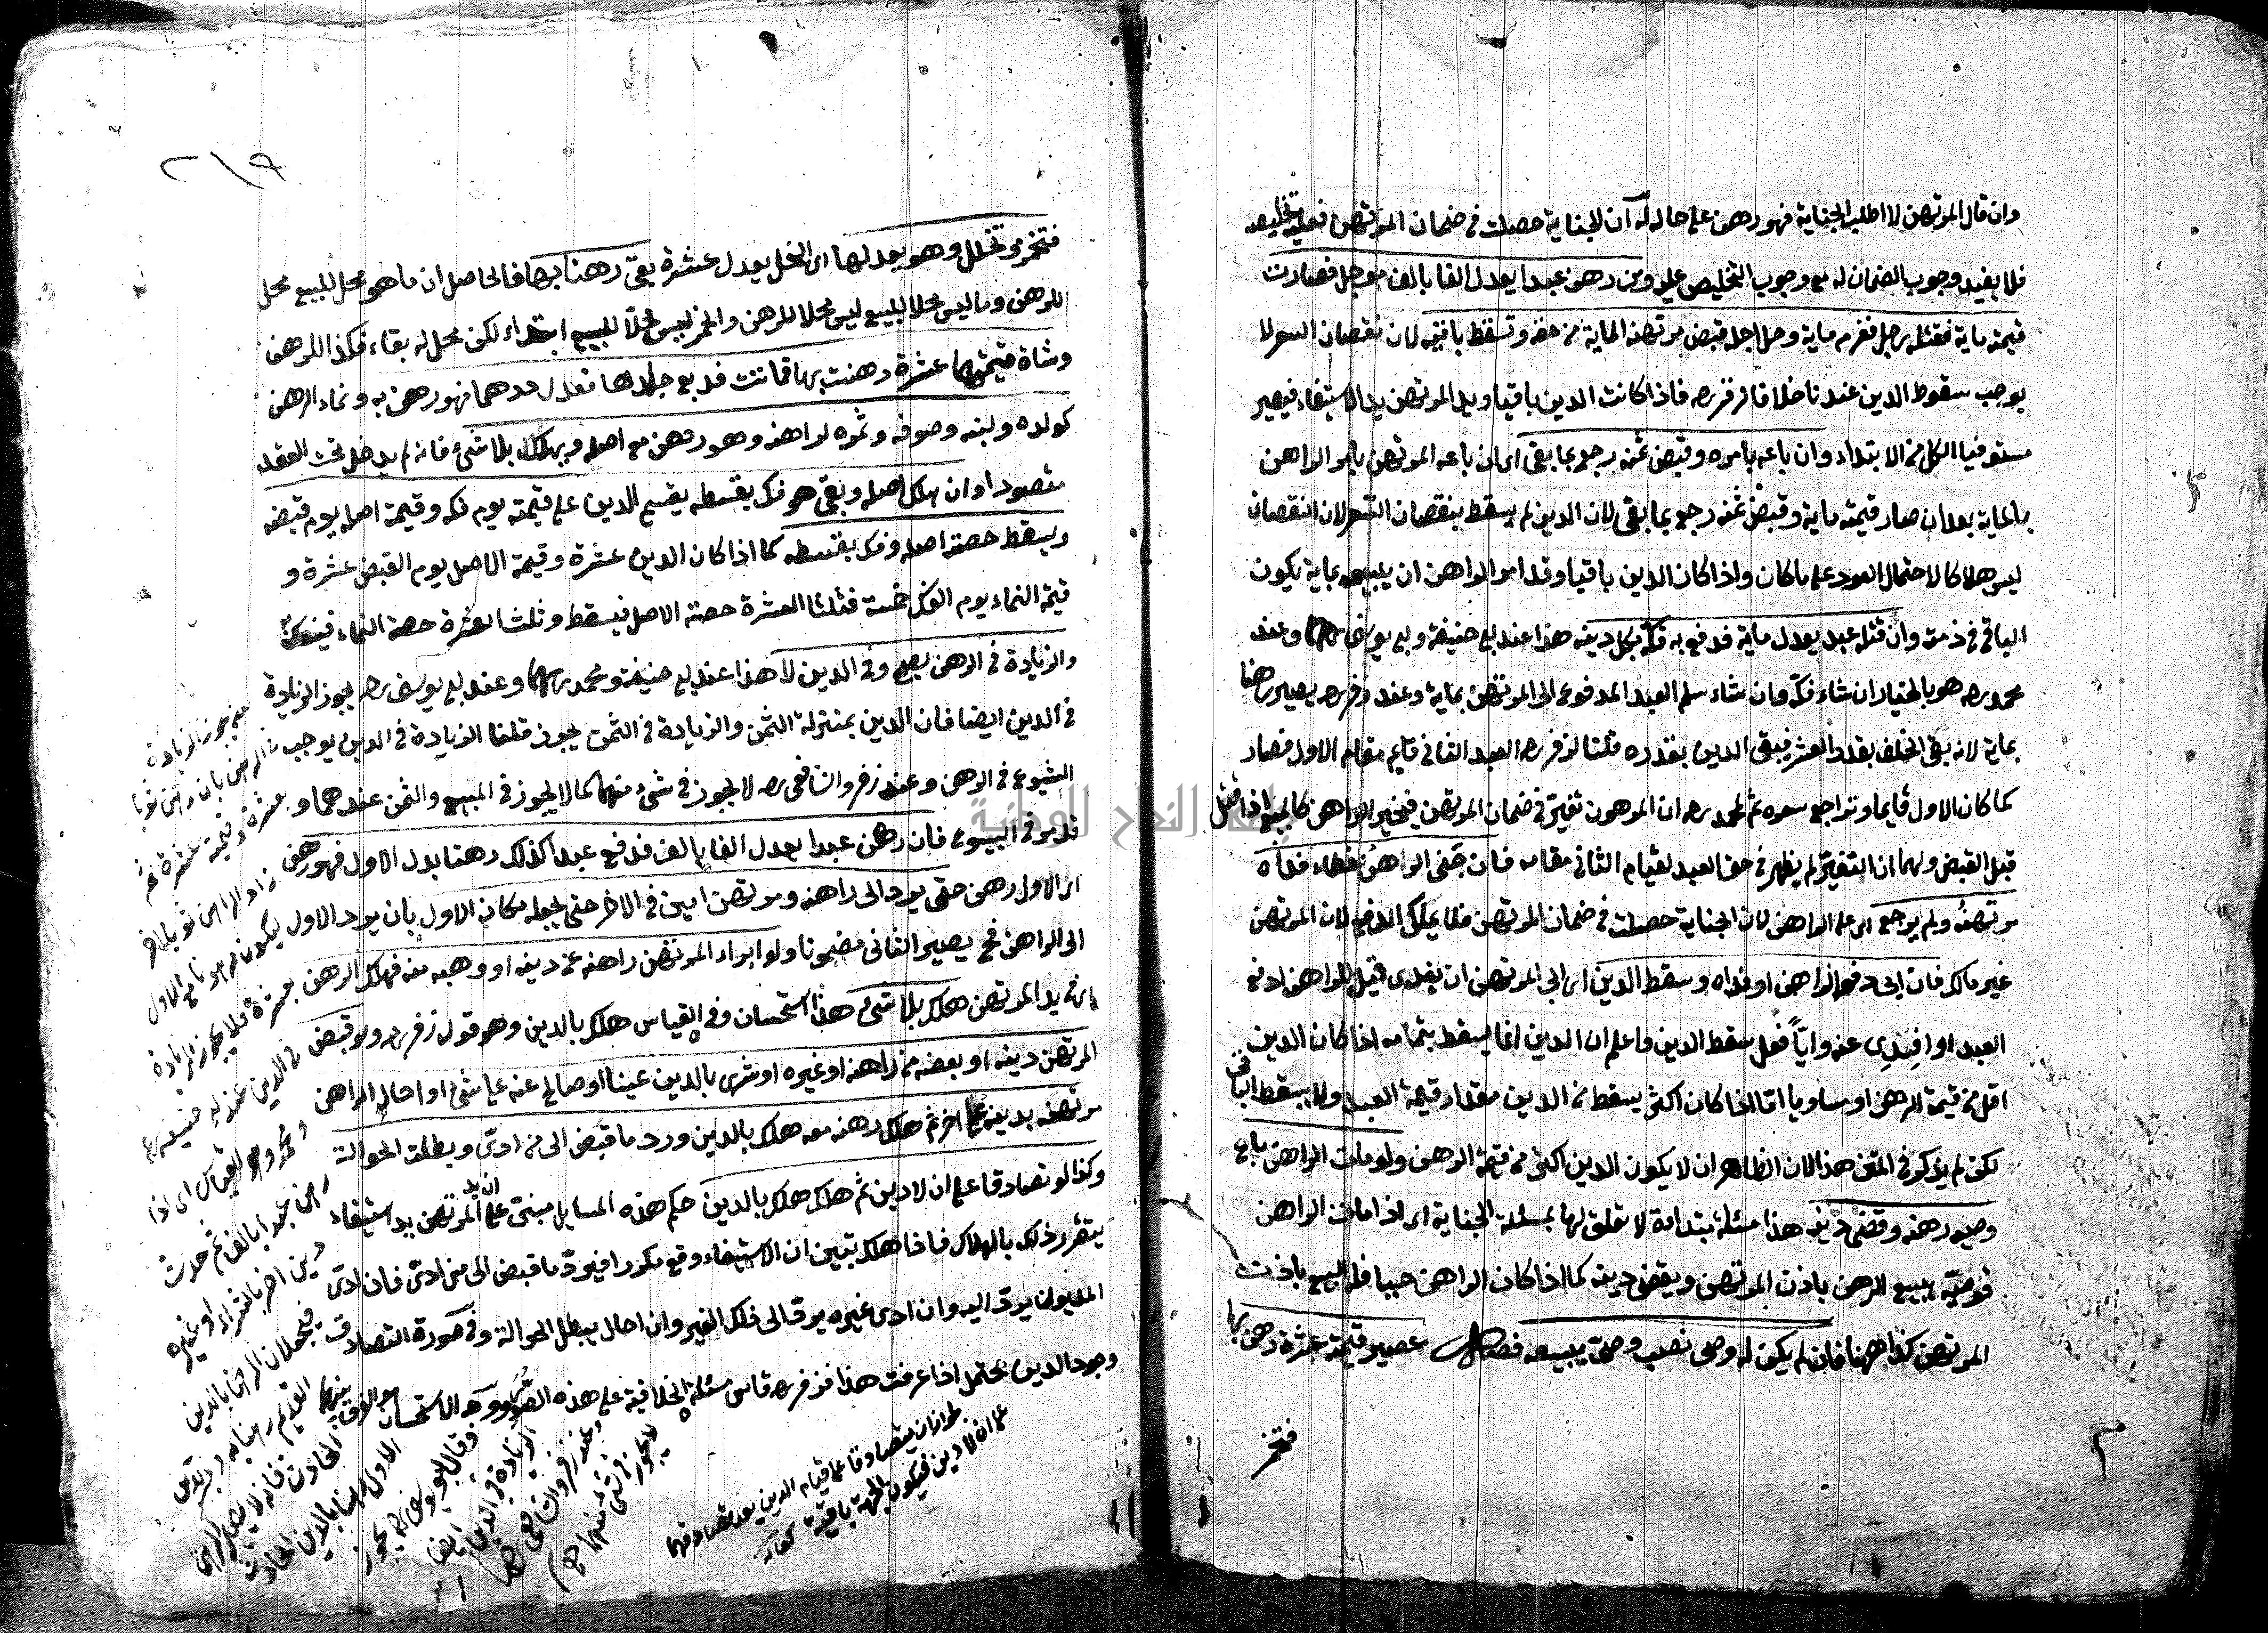 وان قال المرتهن لا اطلب الجناية فهو رهن على حاله له ان الجناية حصلت فى ضمان المرتهن فعليه تخليصه
فلا يفيد وجوب الضمان له مع وجوب التخليص عليه ومن رهن عبدا يعدل الفا بالف مؤجل فصارت
قيمته ماية فقتله رجل فغرم ماية وحل اجله قبض مرتهنه الماية من حقه وتسقط باقيه لان نقصان السعر لا
يوجب سقوط الدين عندنا خلافا لزفر رح فاذا كانت الدين باقيا ويد المرتهن يد الاستيفاء فيصير
مستوفيا الكل من الابتداء وان باعه بامره وقبض ثمنه رجع بما بقى اى ان باعه المرتهن بامر الراهن
بالماية بعد ان صار قيمته ماية وقبض ثمنه رجع بما بقى لان الدين لم يسقط بنقصان السعر لان النقصان
ليس هلاكا لاحتمال العود على ما كان واذا كان الدين باقيا وقد امر الراهن ان يبيعه بماية يكون
الباقى فى ذمته وان قتله عبد يعدل ماية فدفع به فكه بكل دينه هذا عند ابى حنيفة وابى يوسف رحمهما وعند
محمد رح هو بالخيار ان شاء فكه وان شاء سلم العبد المدفوع الى المرتهن بماية وعند زفر رح يصير رهنا
بماية لانه بقى الخلف بقدر العشر فيبقى الدين بقدره قلنا لزفر رح العبد الثانى قايم مقام الاول فصار
كما كان الاول قايما وتراجع سعره ثم لمحمد رح ان المرهون تغير فى ضمان المرتهن فيخير الراهن كالمبيع اذا قتل
قبل القبض ولهما ان التغير لم يظهر فى حق العبد لقيام الثانى مقامه فان جنى الراهن خطاء فداه
مرتهنه ولم يرجع اى على الراهن لان الجناية حصلت فى ضمان المرتهن فلا يملك الدفع لان المرتهن
غير مالك فان ابى دفعه الراهن او فداه وسقط الدين اى ابى المرتهن ان يفدى قيل للراهن ادفع
العبد او افتدى عنه وايا فعل سقط الدين واعلم ان الدين انما يسقط بتمامه اذا كان الدين
اقل من قيمة الرهن او مساويا اما اذا كان اكثر يسقط من الدين مقدار قيمة العبد ولا يسقط الباقى
لكن لم يذكر فى المتن هذا لان الظاهر ان لا يكون الدين اكثر من قيمة الرهن ولو مات الراهن باع
وصيه رهنه وقضى دينه هذا مسئلة مبتداة لا تعلق لها بمسئلة الجناية اى اذا مات الراهن
فوصيه يبيع الرهن باذن المرتهن ويقضى دينه كما اذا كان الراهن حيا فله البيع باذن
المرتهن كذا ههنا فان لم يكن له وصى نصب وصى يبيعه فصل عصير قيمته عشرة رهن بها
فتخمر
٢١٩
فتخمر وتخلل وهو يعدلها اى الخل يعدل عشرة بقى رهنا بها فالحاصل ان ما هو محل للبيع محل
للرهن وما ليس محلا للبيع ليس محلا للرهن والخمر ليس محلا للبيع ابتداء لكن محل له بقاء فكذا للرهن
وشاة قيمتها عشرة رهنت بها فماتت فدبغ جلدها فعدل درهما فهو رهن به ونماء الرهن
كولده ولبنه وصوفه وثمره لراهنه وهو رهن مع اصله ويهلك بلا شئ فانه لم يدخل تحت العقد
مقصودا وان هلك اصله وبقى هو فك بقسطه يقسم الدين على قيمته يوم فكه وقيمة اصله يوم قبضه
ويسقط حصة اصله وفك بقسطه كما اذا كان الدين عشرة وقيمة الاصل يوم القبض عشرة و
قيمة النماء يوم الفك خمسة فثلثا العشرة حصة الاصل فيسقط وثلث العشرة حصة النماء فيفك به
والزيادة فى الرهن يصح وفى الدين لا هذا عند ابى حنيفة ومحمد رحمهما وعند ابى يوسف رح يجوز الزيادة
فى الدين ايضا فان الدين بمنزلة الثمن والزيادة فى الثمن يجوز قلنا الزيادة فى الدين يوجب
الشيوع فى الرهن وعند زفر والشافعى رح لا يجوز فى شئ منهما كما لا يجوز فى المبيع والثمن عندهما و
قد مر فى البيوع فان رهن عبدا يعدل الفا بالف فدفع عبدا كذلك رهنا بدل الاول فهو رهن
اى الاول رهن حتى يرد الى راهنه ومرتهن امين فى الاخر حتى يجعله مكان الاول بان يرد الاول
الى الراهن فح يصير الثانى مضمونا ولو ابراء المرتهن راهنه عن دينه او وهبه منه فهلك الرهن
اى فى يد المرتهن هلك بلا شئ هذا استحسان وفى القياس هلك بالدين وهو قول زفر رح ولو قبض
المرتهن دينه او بعضه من راهنه او غيره او شرى بالدين عينا او صالح عنه على شئ او احال الراهن
مرتهنه بدينه على اخر ثم هلك رهنه معه هلك بالدين ورد ما قبض الى من ادى وبطلت الحوالة
وكذا لو تصادقا على ان لا دين ثم هلك هلك بالدين حكم هذه المسايل مبنى على ان يد المرتهن يد استيفاء
يتقرر ذلك بالهلاك فاذا هلك تبين ان الاستيفاء وقع مكررا فيرد ما قبض الى من ادى فان ادى
المديون يرد اليه وان ادى غيره يرد الى ذلك الغير وان احال يبطل الحوالة وفى صورة التصادق
وجود الدين يحتمل اذا عرفت هذا فزفر رح قاس مسئلة الخلافية على هذه الصور ووجه الاستحسان
لجواز ان يتصادقا على قيام الدين بعد تصادقهما
على ان لا دين فيكون الجهة باقية